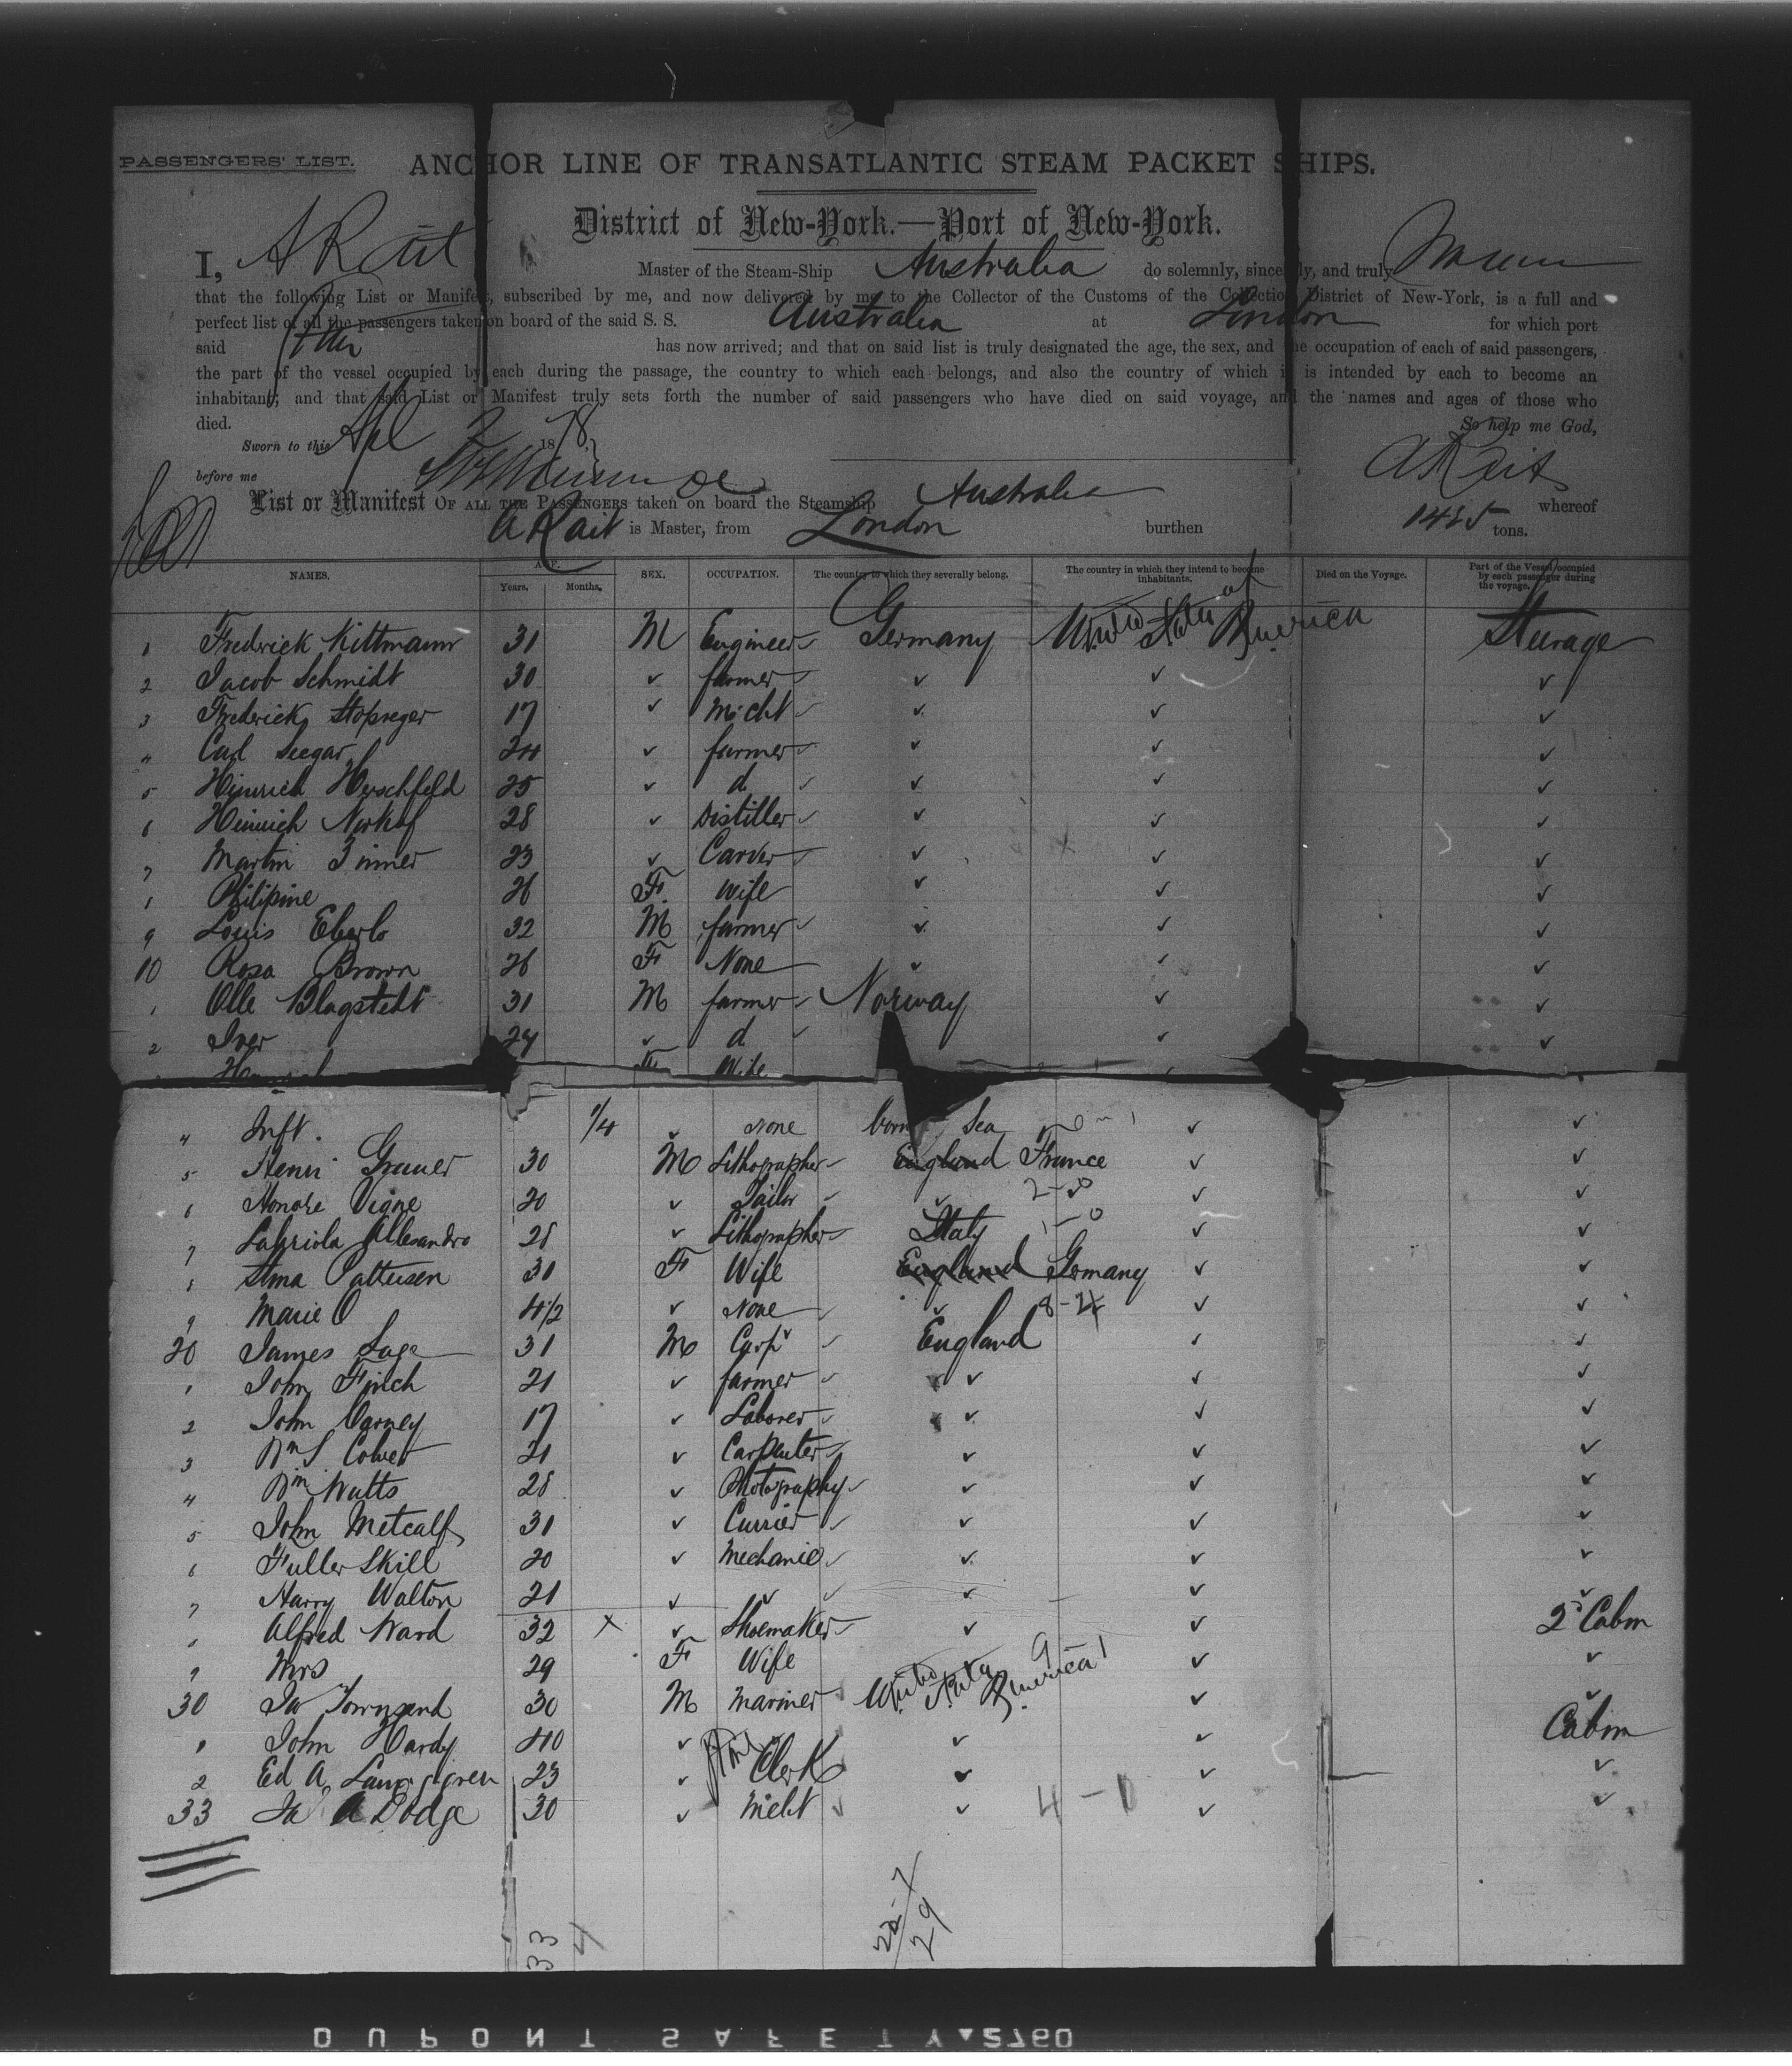 PASSENGERS' LIST.
ANCHOR LINE OF TRANSATLANTIC STEAM PACKET SHIPS.
District of New-York.—Port of New-York.
I, A Rait Master of the Steam-Ship Australia do solemnly, sincerely, and truly
that the following List or Manifest, subscribed by me, and now delivered by me to the Collector of the Customs of the Collection District of New-York, is a full and
perfect list of all the passengers taken on board of the said S. S. Australia at London for which port
said has now arrived; and that on said list is truly designated the age, the sex, and the occupation of each of said passengers,
the part of the vessel occupied by each during the passage, the country to which each belongs, and also the country of which it is intended by each to become an
inhabitant; and that said List or Manifest truly sets forth the number of said passengers who have died on said voyage, and the names and ages of those who
died. So help me God,
Sworn to this Apl 2 1878
before me A Rait
List or Manifest OF ALL THE PASSENGERS taken on board the Steamship Australia whereof
A Rait is Master, from London burthen 1485 tons.
NAMES. AGE. Years. Months. SEX. OCCUPATION. The country to which they severally belong. The country in which they intend to become inhabitants. Died on the Voyage. Part of the Vessel occupied by each passenger during the voyage.
1 Frederick Kittmann 31 M Engineer Germany United States of America Steerage
2 Jacob Schmidt 30 ✓ farmer ✓ ✓ ✓
3 Frederick 17 ✓ Mcht ✓ ✓ ✓
" Carl Seegar 24 ✓ farmer ✓ ✓ ✓
5 Heinrich Herschfeld 25 ✓ d ✓ ✓ ✓
6 Heinrich 28 ✓ Distiller ✓ ✓ ✓
7 Martin 23 ✓ Carver ✓ ✓ ✓
8 Philipine 26 F wife ✓ ✓ ✓
9 Louis 32 M farmer ✓ ✓ ✓
10 Rosa Brown 26 F None ✓ ✓ ✓
1 Olle Blagstedt 31 M farmer Norway ✓ ✓
2 Iver 24 ✓ d ✓ ✓
F Wife
" Inft. 1/4 ✓ none born Sea ✓ ✓
5 Henri Gruner 30 M Lithographer England France ✓ ✓
6 Honore Vigne 20 ✓ Tailor ✓ 2-0 ✓ ✓
7 Labriola Allesandro 28 ✓ Lithographer Italy 1-0 ✓ ✓
8 Patteisen 31 F Wife England Germany ✓ ✓
9 Marie O 4 1/2 ✓ None ✓ ✓ ✓
20 James Sage 31 M Carpr England ✓ ✓
1 John Finch 21 ✓ farmer ✓ ✓ ✓
2 John 17 ✓ Laborer ✓ ✓ ✓
3 Wm S 21 ✓ Carpenter ✓ ✓ ✓
4 Wm Watts 28 ✓ Photography ✓ ✓ ✓
5 John Metcalf 31 ✓ Currier ✓ ✓ ✓
6 Fuller Skill 20 ✓ Mechanic ✓ ✓ ✓
7 Harry Walton 21 ✓ ✓ ✓ ✓ ✓
8 Alfred Ward 32 × ✓ Shoemaker ✓ ✓ 2d Cabin
9 Mrs 29 F Wife 9-1 ✓ ✓
30 Townsend 30 M Mariner United States America ✓ ✓
1 John Hardy 40 ✓ ✓ ✓ Cabin
2 Ed A 23 ✓ Clerk ✓ ✓ ✓
33 A Dodge 30 ✓ Mcht ✓ 4-0 ✓ ✓
33
4
22-7
29
DUPONT SAFETY 2760